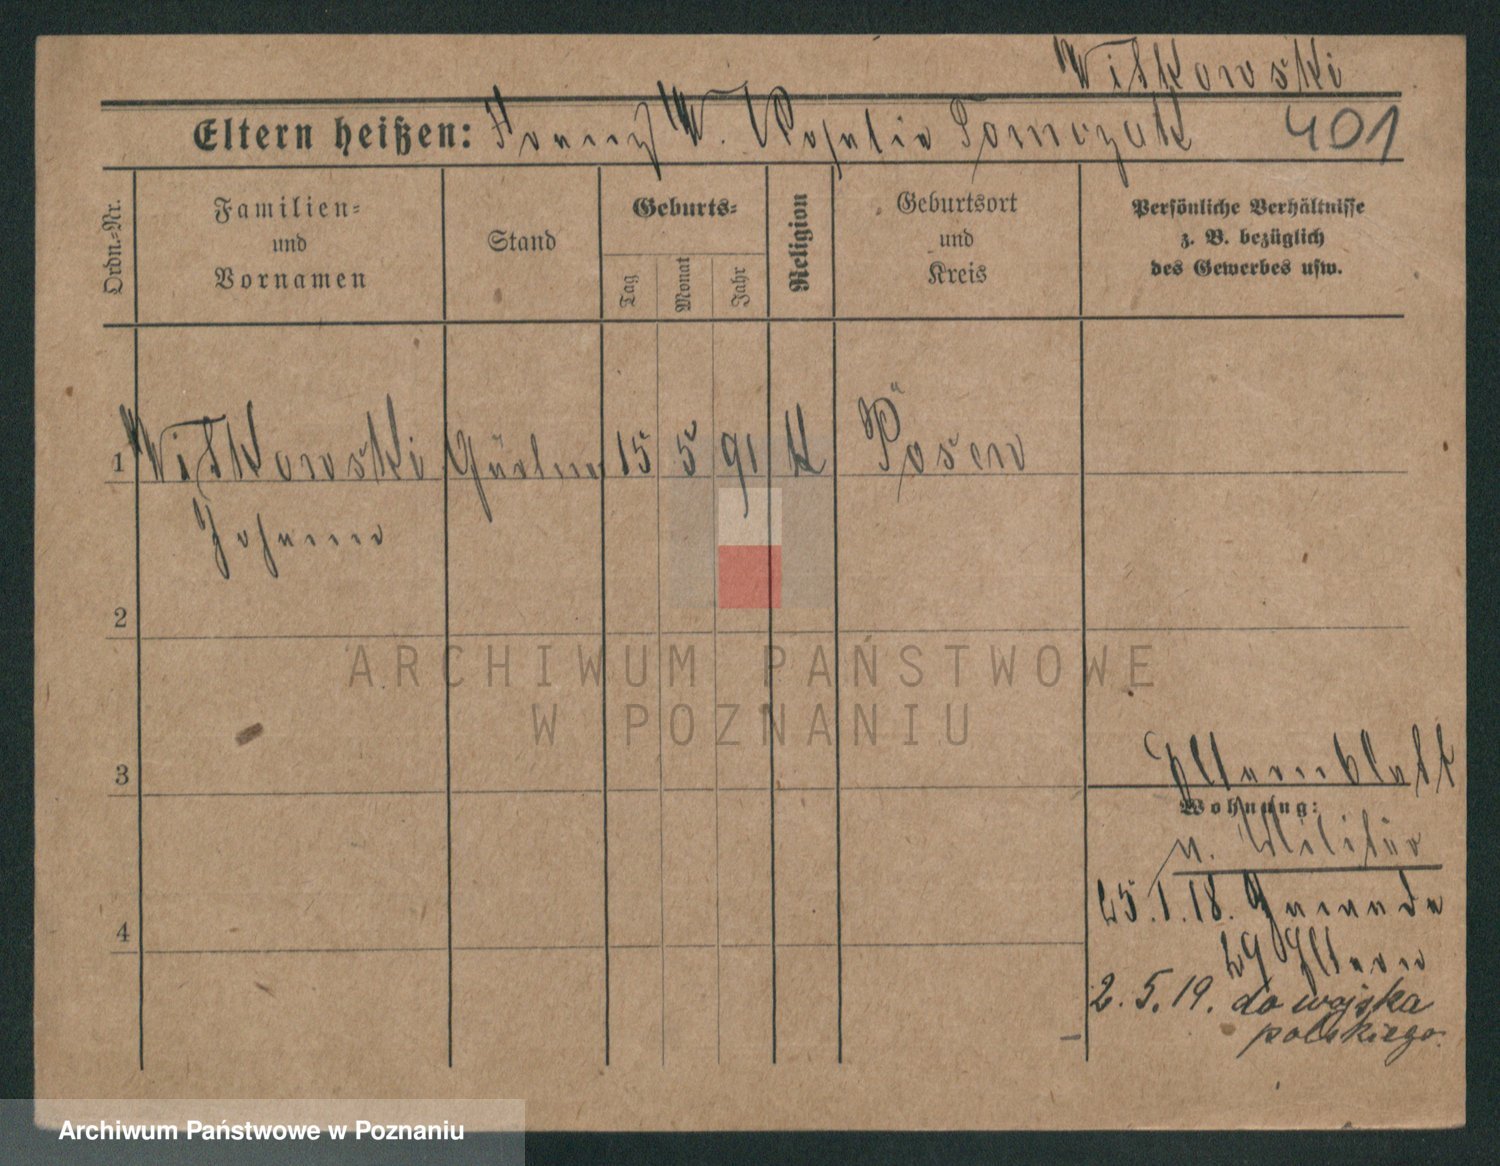 Witkowski
Eltern heißen: Franz W. Rosalia Tomczak 401
Ordn.-Nr.
Familien-
und
Vornamen
Stand
Geburts-
Tag
Monat
Jahr
Religion
Geburtsort
und
Kreis
Persönliche Verhältnisse
z. B. bezüglich
des Gewerbes usw.
1 Witkowski Gärtner 15 5 91 K Posen
Johann
2
ARCHIWUM PAŃSTWOWE
W POZNANIU
3
Elternblatt
Wohnung:
n. Militär
25.1.18.
29 Eltern
2.5.19. do wojska
polskiego.
4
Archiwum Państwowe w Poznaniu